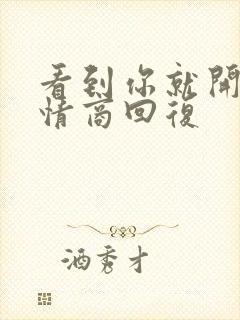 看到你就開
情商回復
酒秀才